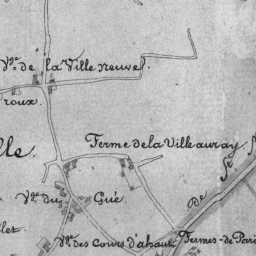 Vge de la Ville neuve
roux.
Ferme de la Ville auray
lle.
Vge du Gué
De St
llet
Vge des Cours d'ahaut
Fermes-de Pari